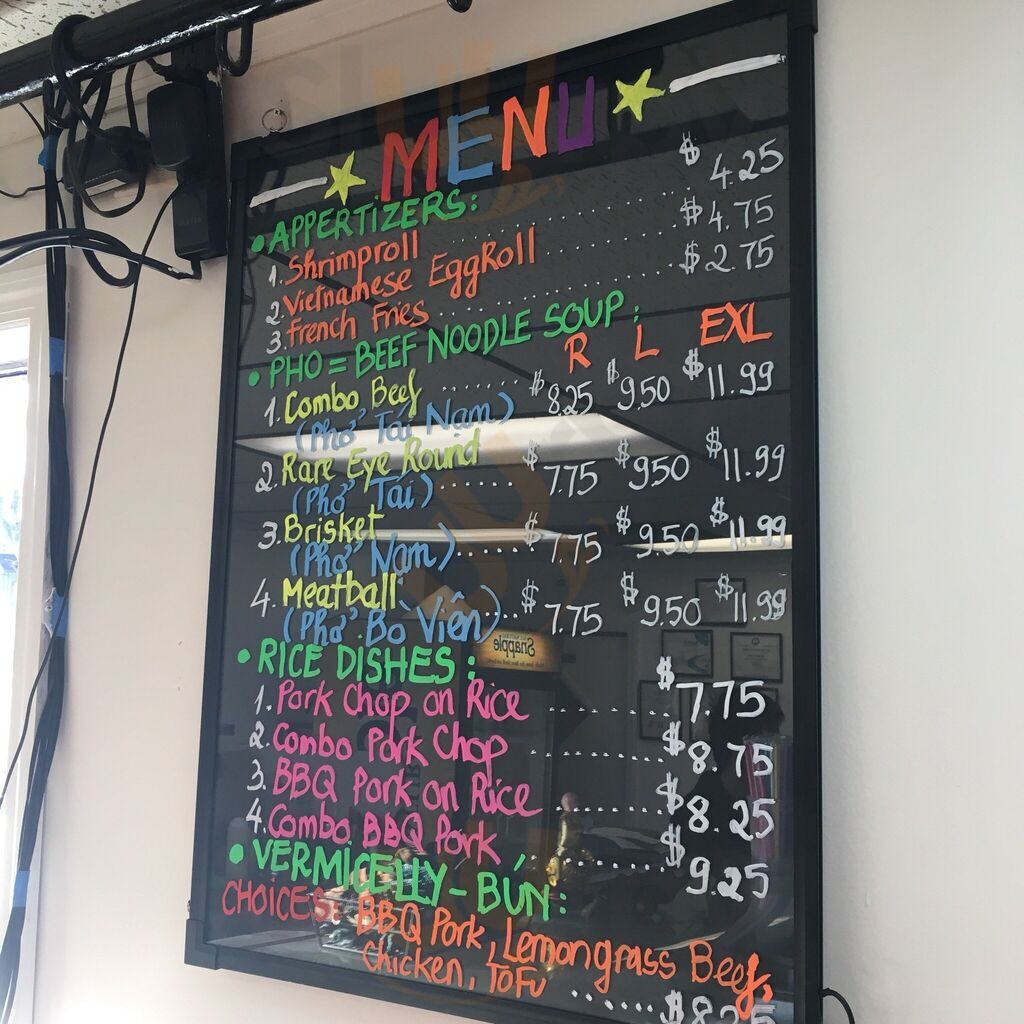 MENU
• APPERTIZERS:
1. Shrimproll ........ $4.25
2. Vietnamese EggRoll ........ $4.75
3. French Fries ........ $2.75
• PHO = BEEF NOODLE SOUP: R L EXL
1. Combo Beef ........ $8.25 $9.50 $11.99
(Phở Tái Nạm)
2. Rare Eye Round
(Phở Tái) ........ $7.75 $950 $11.99
3. Brisket
(Phở Nạm) ...... $7.75 $9.50 $11.99
4. Meatball
(Phở Bò Viên) .... $7.75 $9.50 $11.99
• RICE DISHES:
1. Pork Chop on Rice ........ $7.75
2. Combo Pork Chop ........ $8.75
3. BBQ Pork on Rice ........ $8.25
4. Combo BBQ Pork ........ $9.25
• VERMICELLY - BÚN:
CHOICES: BBQ Pork, Lemongrass Beef,
Chicken, ToFu ...... $8.25
Snapple